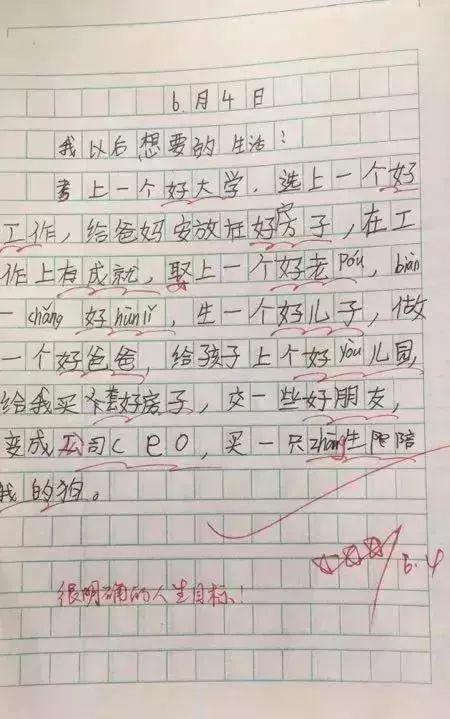 6月4日
我以后想要的生活:
考上一个好大学,选上一个好
工作,给爸妈安放在好房子,在工
作上有成就,娶上一个好老Pó,biàn
一chǎng好hūnlǐ,生一个好儿子,做
一个好爸爸,给孩子上个好yòu儿园,
给我买套好房子,交一些好朋友,
变成公司CEO,买一只zhōng生陪
我的狗。
6.4
很明确的人生目标!